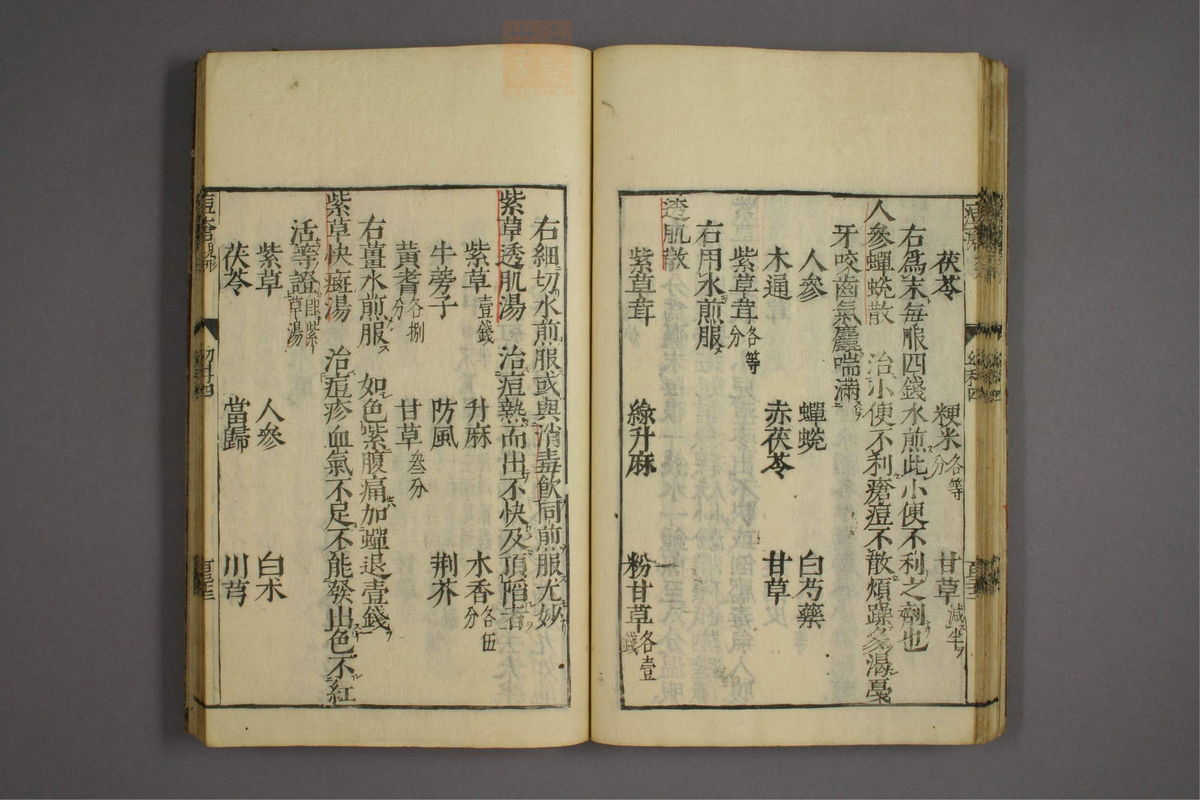 茯苓 粳米各等分 甘草減半
右爲末每服四錢水煎此小便不利之劑也
人參蟬蛻散 治小便不利瘡痘不散煩躁多渴戞
牙咬齒氣麤喘滿
人參 蟬蛻 白芍藥
木通 赤茯苓 甘草
紫草茸各等分
右用水煎服
透肌散
紫草茸 綠升麻 粉甘草各壹錢
右細切水煎服或與消毒飲同煎服尤妙
紫草透肌湯 治痘熱而出不快及頂陷者
紫草壹錢 升麻 木香各伍分
牛蒡子 防風 荆芥
黃耆各捌分 甘草叁分
右薑水煎服 如色紫腹痛加蟬退壹錢
紫草快癍湯 治痘疹血氣不足不能發出色不紅
活等證
紫草 人參 白朮
茯苓 當歸 川芎